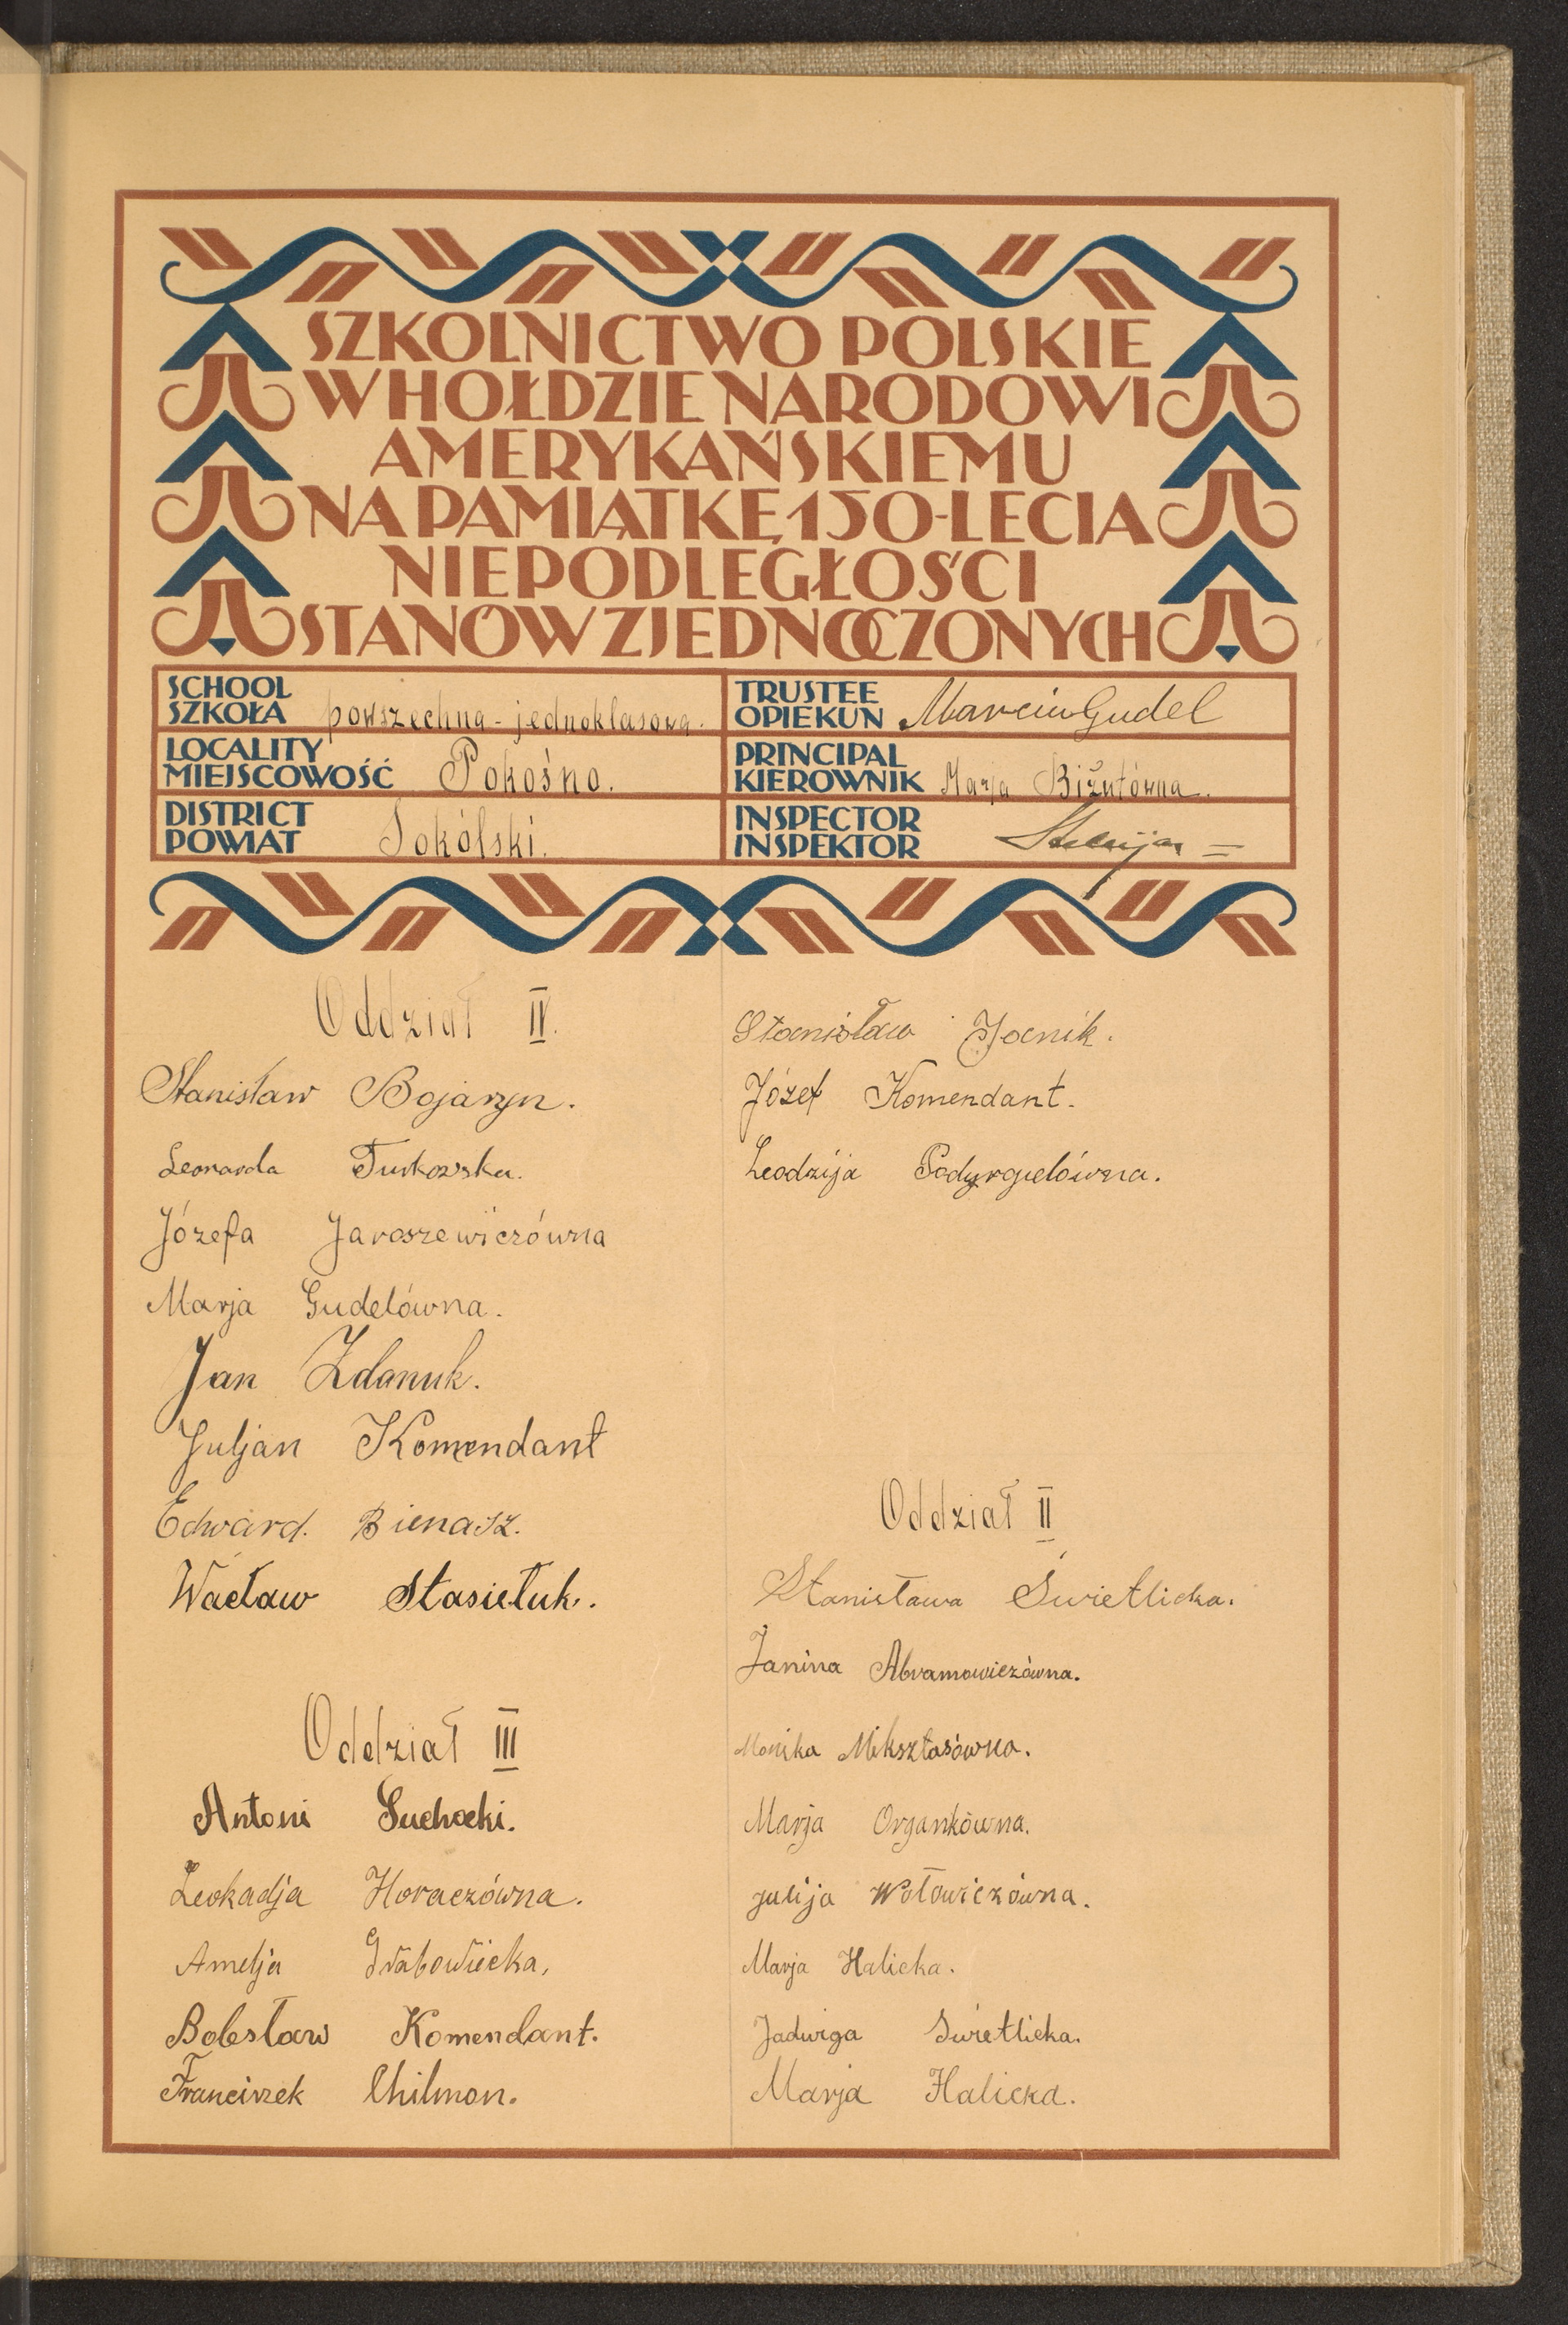 SZKOLNICTWO POLSKIE
W HOŁDZIE NARODOWI
AMERYKAŃSKIEMU
NA PAMIĄTKĘ 150-LECIA
NIEPODLEGŁOŚCI
STANÓW ZJEDNOCZONYCH
SCHOOL
SZKOŁA powszechna - jednoklasowa.
LOCALITY
MIEJSCOWOŚĆ Pokośno.
DISTRICT
POWIAT Sokólski.
TRUSTEE
OPIEKUN Marcin Gudel
PRINCIPAL
KIEROWNIK Marja Biżutówna.
INSPECTOR
INSPEKTOR
Oddział IV.
Stanisław Bojaryn.
Leonarda Turkowska.
Józefa Jaroszewiczówna
Marja Gudelówna.
Jan Zdanuk.
Juljan Komendant
Edward. Bienasz.
Wacław Stasieluk.
Oddział III
Antoni Suchocki.
Leokadja Horaczówna.
Amelja Grabowiecka,
Bolesław Komendant.
Franciszek Chilmon.
Stanisław Jacnik.
Józef Komendant.
Leodzija
Oddział II
Stanisława Świetlicka.
Janina Abramowiczówna.
Monika Miksztasówna.
Marja Organkówna.
Julija Wołowiczówna.
Marja Halicka.
Jadwiga Świetlicka.
Marja Halicka.